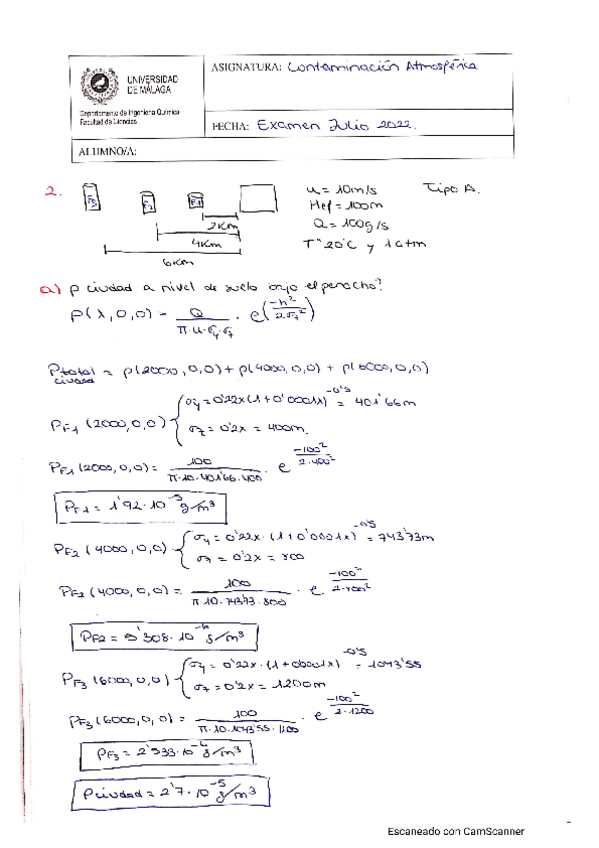 UNIVERSIDAD
DE MÁLAGA
Departamento de Ingeniería Química
Facultad de Ciencias
ASIGNATURA: Contaminación Atmosférica
FECHA: Examen Julio 2022.
ALUMNO/A:
2.
F3 F2 F1
2Km
4Km
6Km
u = 10m/s Tipo A.
Hef = 100m
Q = 100g/s
Tª 20ºC y 1atm
a) ρ ciudad a nivel de suelo bajo el penacho?
ρ(x,0,0) = Q / π·u·σy·σz · e^(-h² / 2σz²)
ρtotal ciudad = ρ(2000,0,0) + ρ(4000,0,0) + ρ(6000,0,0)
ρF1 (2000,0,0) { σy = 0'22x(1+0'0001x)^-0'5 = 401'66m
σz = 0'2x = 400m.
ρF1 (2000,0,0) = 100 / π·10·401'66·400 · e^(-100² / 2·400²)
ρF1 = 1'92·10^-5 g/m³
ρF2 (4000,0,0) { σy = 0'22x·(1+0'0001x)^-0'5 = 743'73m
σz = 0'2x = 800
ρF2 (4000,0,0) = 100 / π·10·743'73·800 · e^(-100² / 2·800²)
ρF2 = 5'308·10^-6 g/m³
ρF3 (6000,0,0) { σy = 0'22x·(1+0'0001x)^-0'5 = 1043'55
σz = 0'2x = 1200m
ρF3 (6000,0,0) = 100 / π·10·1043'55·1200 · e^(-100² / 2·1200)
ρF3 = 2'533·10^-6 g/m³
ρciudad = 2'7·10^-5 g/m³
Escaneado con CamScanner